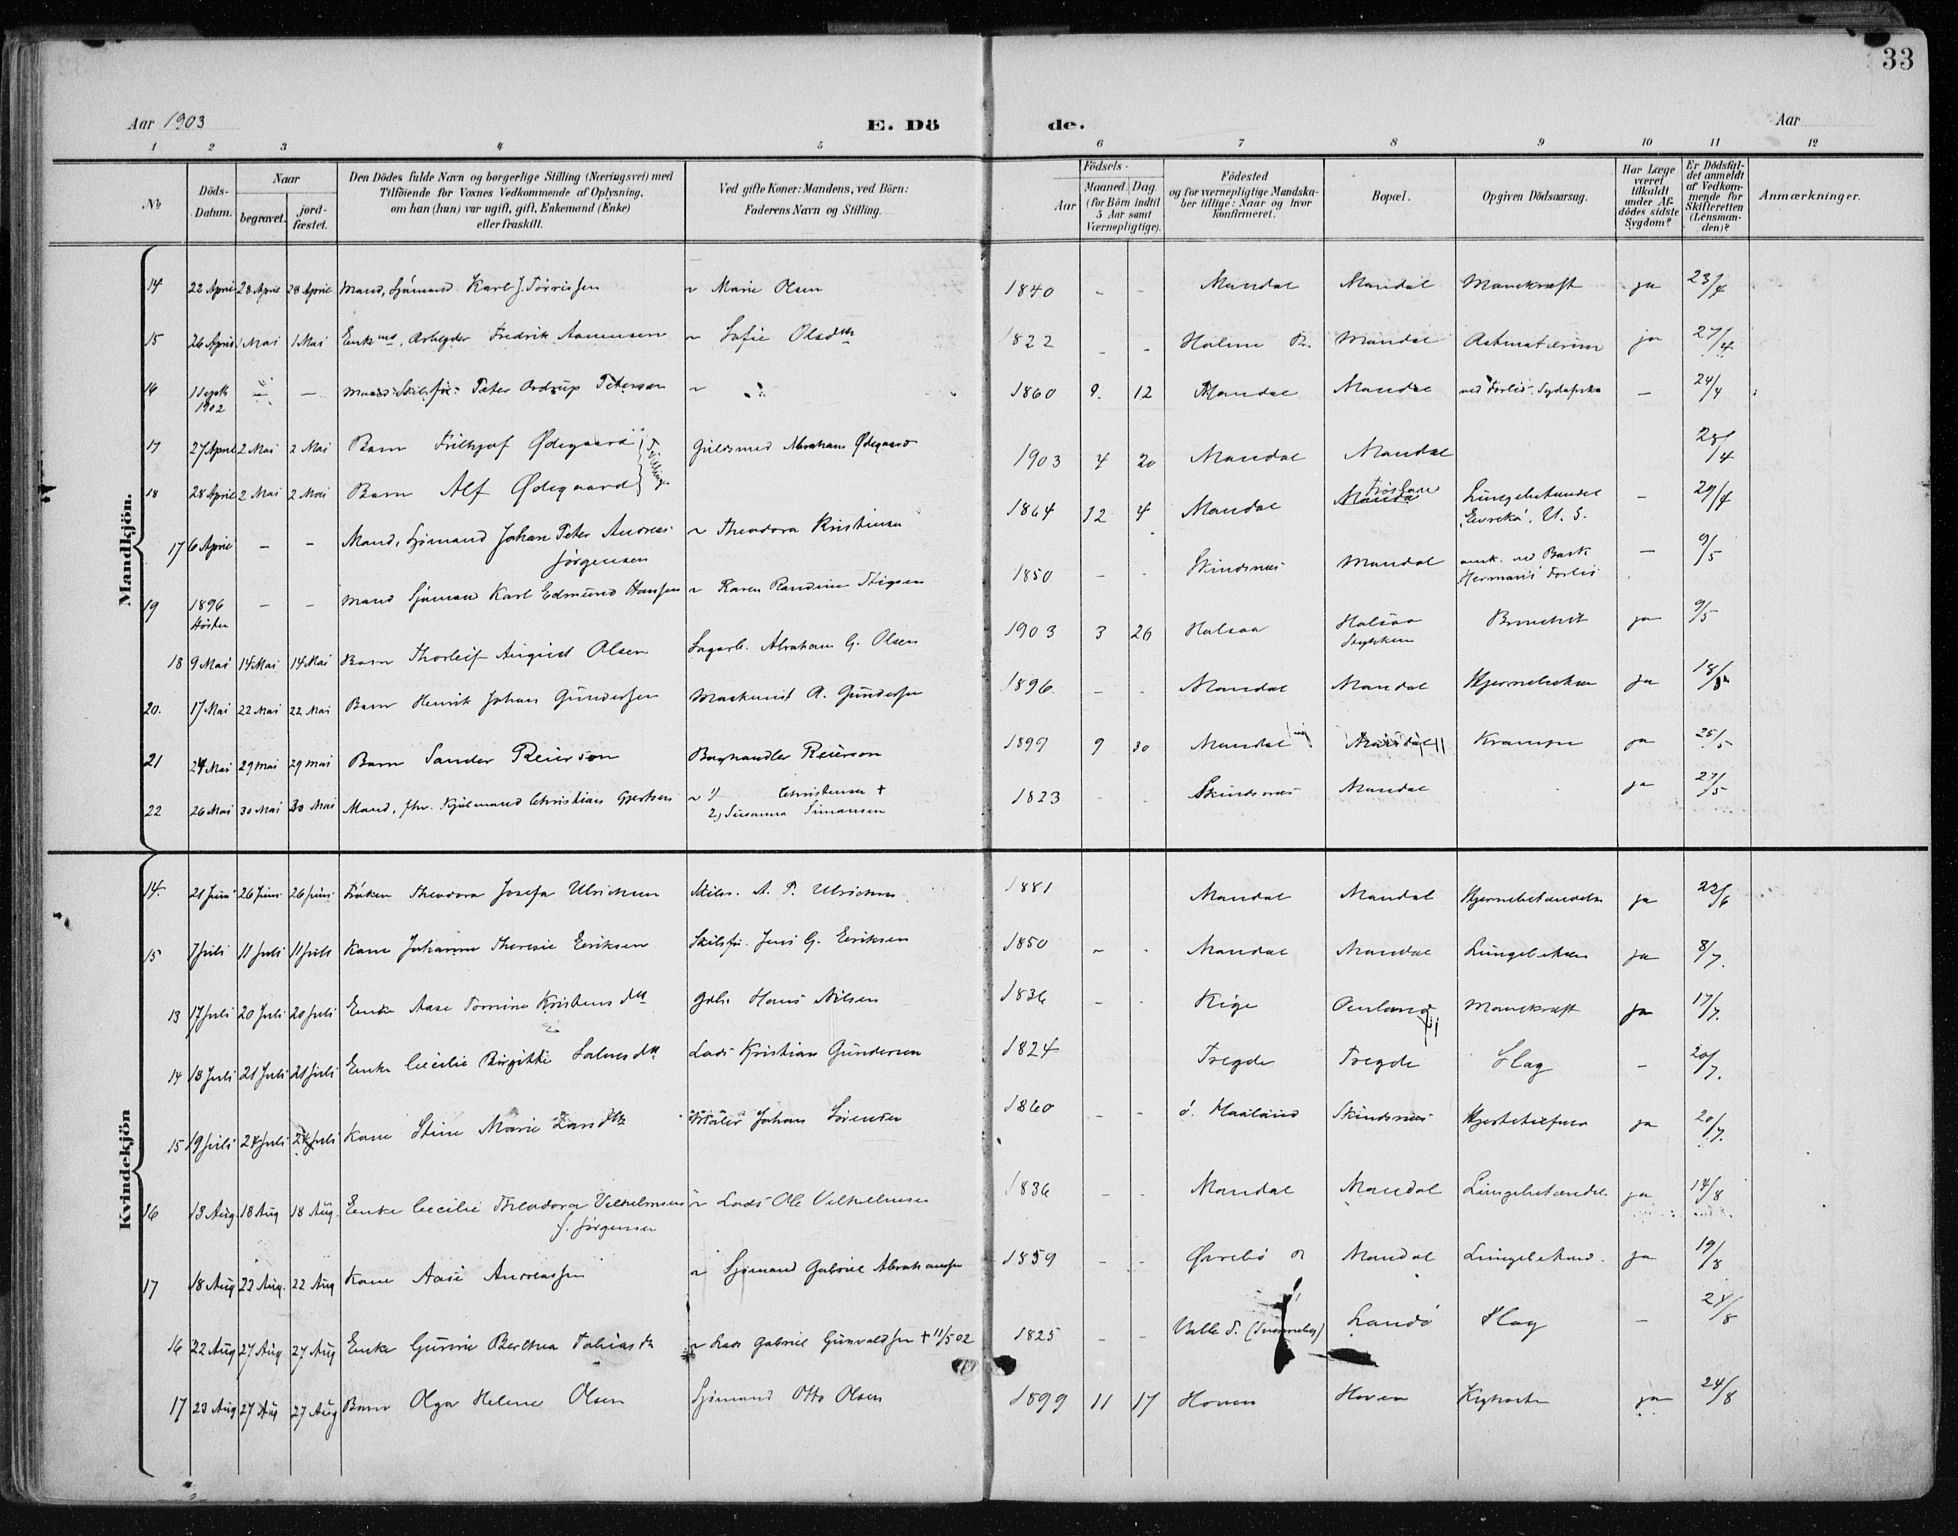 33
Aar 1903
E. Dö
de.
Aar
1 2 3 4 5 6 7 8 9 10 11 12
№
Döds-
Datum.
Naar
begravet.
jord-
fæstet.
Den Dödes fulde Navn og borgerlige Stilling (Næringsvei) med
Tilföiende for Voxnes Vedkommende af Oplysning,
om han (hun) var ugift, gift, Enkemand (Enke)
eller fraskilt.
Ved gifte Koner: Mandens, ved Börn:
Faderens Navn og Stilling.
Födsels-
Aar
Maaned. Dag.
(for Börn indtil
5 Aar samt
Værnepligtige).
Födested
og for værnepligtige Mandska-
ber tillige: Naar og hvor
konfirmeret.
Bopæl.
Opgiven Dödsaarsag.
Har Læge
været
tilkaldt
under Af-
dödes sidste
Sygdom?
Er Dödsfal-
det anmeldt
af Vedkom-
mende for
Skifteretten
(Lensman-
den)?
Anmærkninger.
Mandkjön.
14 22 April 28 April 28 April Mand, Sjömand Karl J. Törrissen ~ Marie Olsen 1840 - - Mandal Mandal Mavekræft ja 23/4
15 26 April 1 Mai 1 Mai Enkmd, Arbeyder Fredrik Aanensen ~ Sofie Olsdtr 1822 - - Holme P. Mandal ja 27/4
16 1 Septb 1902 — — Peter Ordrup Peterson ~ 1860 9. 12 Mandal Mandal ved Forlis Sydafrika — 24/4
17 27 April 2 Mai 2 Mai Barn Frithjof Ødegaard Guldsmed Abraham Ødegaard 1903 4 20 Mandal Mandal 28/4
18 28 April 2 Mai 2 Mai Barn Alf Ødegaard Tvillinger
17 6 April - - Mand, Sjömand Johan Peter Andreas
Jörgensen ~ Theodora Kristensen 1864 12 4 Mandal Lungebetændel — 29/4
"Eureka", U. S.
19 1896
Hösten - - Mand Sjömand Karl Edmund Hansen ~ Karen Randine Stigsen 1850 - - Skindsnes Mandal omk. ved Bark
Hermanis Forlis — 9/5
18 9 Mai 14 Mai 14 Mai Barn Thorleif August Olsen Sagarb. Abraham G. Olsen 1903 3 26 Halsaa Halsaa Bronchit ja 9/5
20. 17 Mai 22 Mai 22 Mai Barn Henrik Johan Gundersen Maskinist A. Gundersen 1896 - - Mandal Mandal Hjernebetæn ja 18/5
21 24 Mai 29 Mai 29 Mai Barn Sander Reierson Boghandler Reierson 1899 9 30 Mandal Mandal Krampe ja 25/5
22 26 Mai 30 Mai 30 Mai Mand, Christian Gjertsen ~ 1) Christensen †
2) Susanna Simonsen 1823 - - Skindsnes Mandal ja 27/5
Kvindekjön
14. 21 Juni 26 Juni 26 Juni Fröken Theodora Josefa Ulrichsen A. P. Ulrichsen 1881 Mandal Mandal Hjernebetændelse ja 22/6
15 7 Juli 11 Juli 11 Juli Kone Johanne Theresie Eriksen Skibsfr. Jens G. Eriksen 1850 - - Mandal Mandal Lungebetæn ja 8/7.
13 17 Juli 20 Juli 20 Juli Enke Aase Tomine Kristensdtr Hans Nilsen 1836 - - Kige Mavekræft ja 17/7.
14 18 Juli 21 Juli 21 Juli Enke Cecilie Birgitte Salvesdtr Lods Kristian Gundersen 1824 Tregde Tregde Slag — 20/7.
15 19 Juli 24 Juli 24 Juli Kone Stine Marie Larsdtr Maler Johan Sörensen 1860 - - Skindsnes ja 20/7.
16 13 Aug. 18 Aug 18 Aug. Enke Cecilie Theodora Vilhelmsen
f. Jörgensen ~ Lods Ole Vilhelmsen 1836 - - Mandal Mandal Lungebetændel ja 14/8
17 18 Aug 22 Aug. 22 Aug Kone Aase Andreassen ~ Sjömand Gabriel Abrahamsen 1859 - - Øvrebö Mandal Lungebetænd. ja 19/8
16 22 Aug 27 Aug 27 Aug Enke Gurine Berthea Tobiasdtr ~ Lods Gabriel Gunvaldsen † 11/5 02 1825 - - Valle S. Landö Slag — 24/8
17 23 Aug 27 Aug 27 Aug Barn Olga Helene Olsen Sjömand Otto Olsen 1899 11 17 Hoven Hoven Kighoste ja 24/8